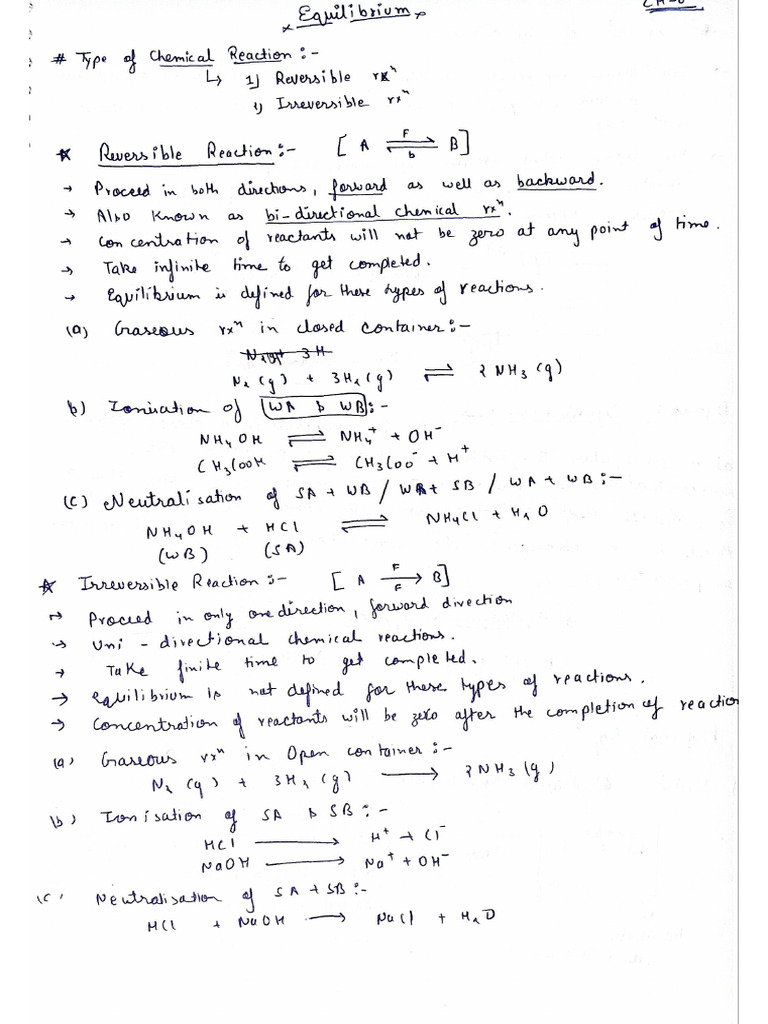 Equilibrium
# Type of Chemical Reaction :-
↳ 1) Reversible rxⁿ
1) Irreversible rxⁿ
☆ Reversible Reaction :- [ A ⇌ B ]
F
b
→ Proceed in both directions, forward as well as backward.
→ Also known as bi-directional chemical rxⁿ.
→ Concentration of reactants will not be zero at any point of time.
→ Take infinite time to get completed.
→ Equilibrium is defined for these types of reactions.
(a) Gaseous rxⁿ in closed container :-
N₂ (g) + 3H₂ (g) ⇌ 2 NH₃ (g)
b) Ionisation of WA & WB :-
NH₄OH ⇌ NH₄⁺ + OH⁻
CH₃COOH ⇌ CH₃COO⁻ + H⁺
(c) Neutralisation of SA + WB / WA + SB / WA + WB :-
NH₄OH + HCl ⇌ NH₄Cl + H₂O
(WB) (SA)
☆ Irreversible Reaction :- [ A → B ]
F
F
→ Proceed in only one direction, forward direction
→ Uni-directional chemical reactions.
→ Take finite time to get completed.
→ equilibrium is not defined for these types of reactions.
→ Concentration of reactants will be zero after the completion of reaction
(a) Gaseous rxⁿ in Open container :-
N₂ (g) + 3H₂ (g) → 2NH₃ (g)
(b) Ionisation of SA & SB :-
HCl → H⁺ + Cl⁻
NaOH → Na⁺ + OH⁻
(c) Neutralisation of SA + SB :-
HCl + NaOH → NaCl + H₂O